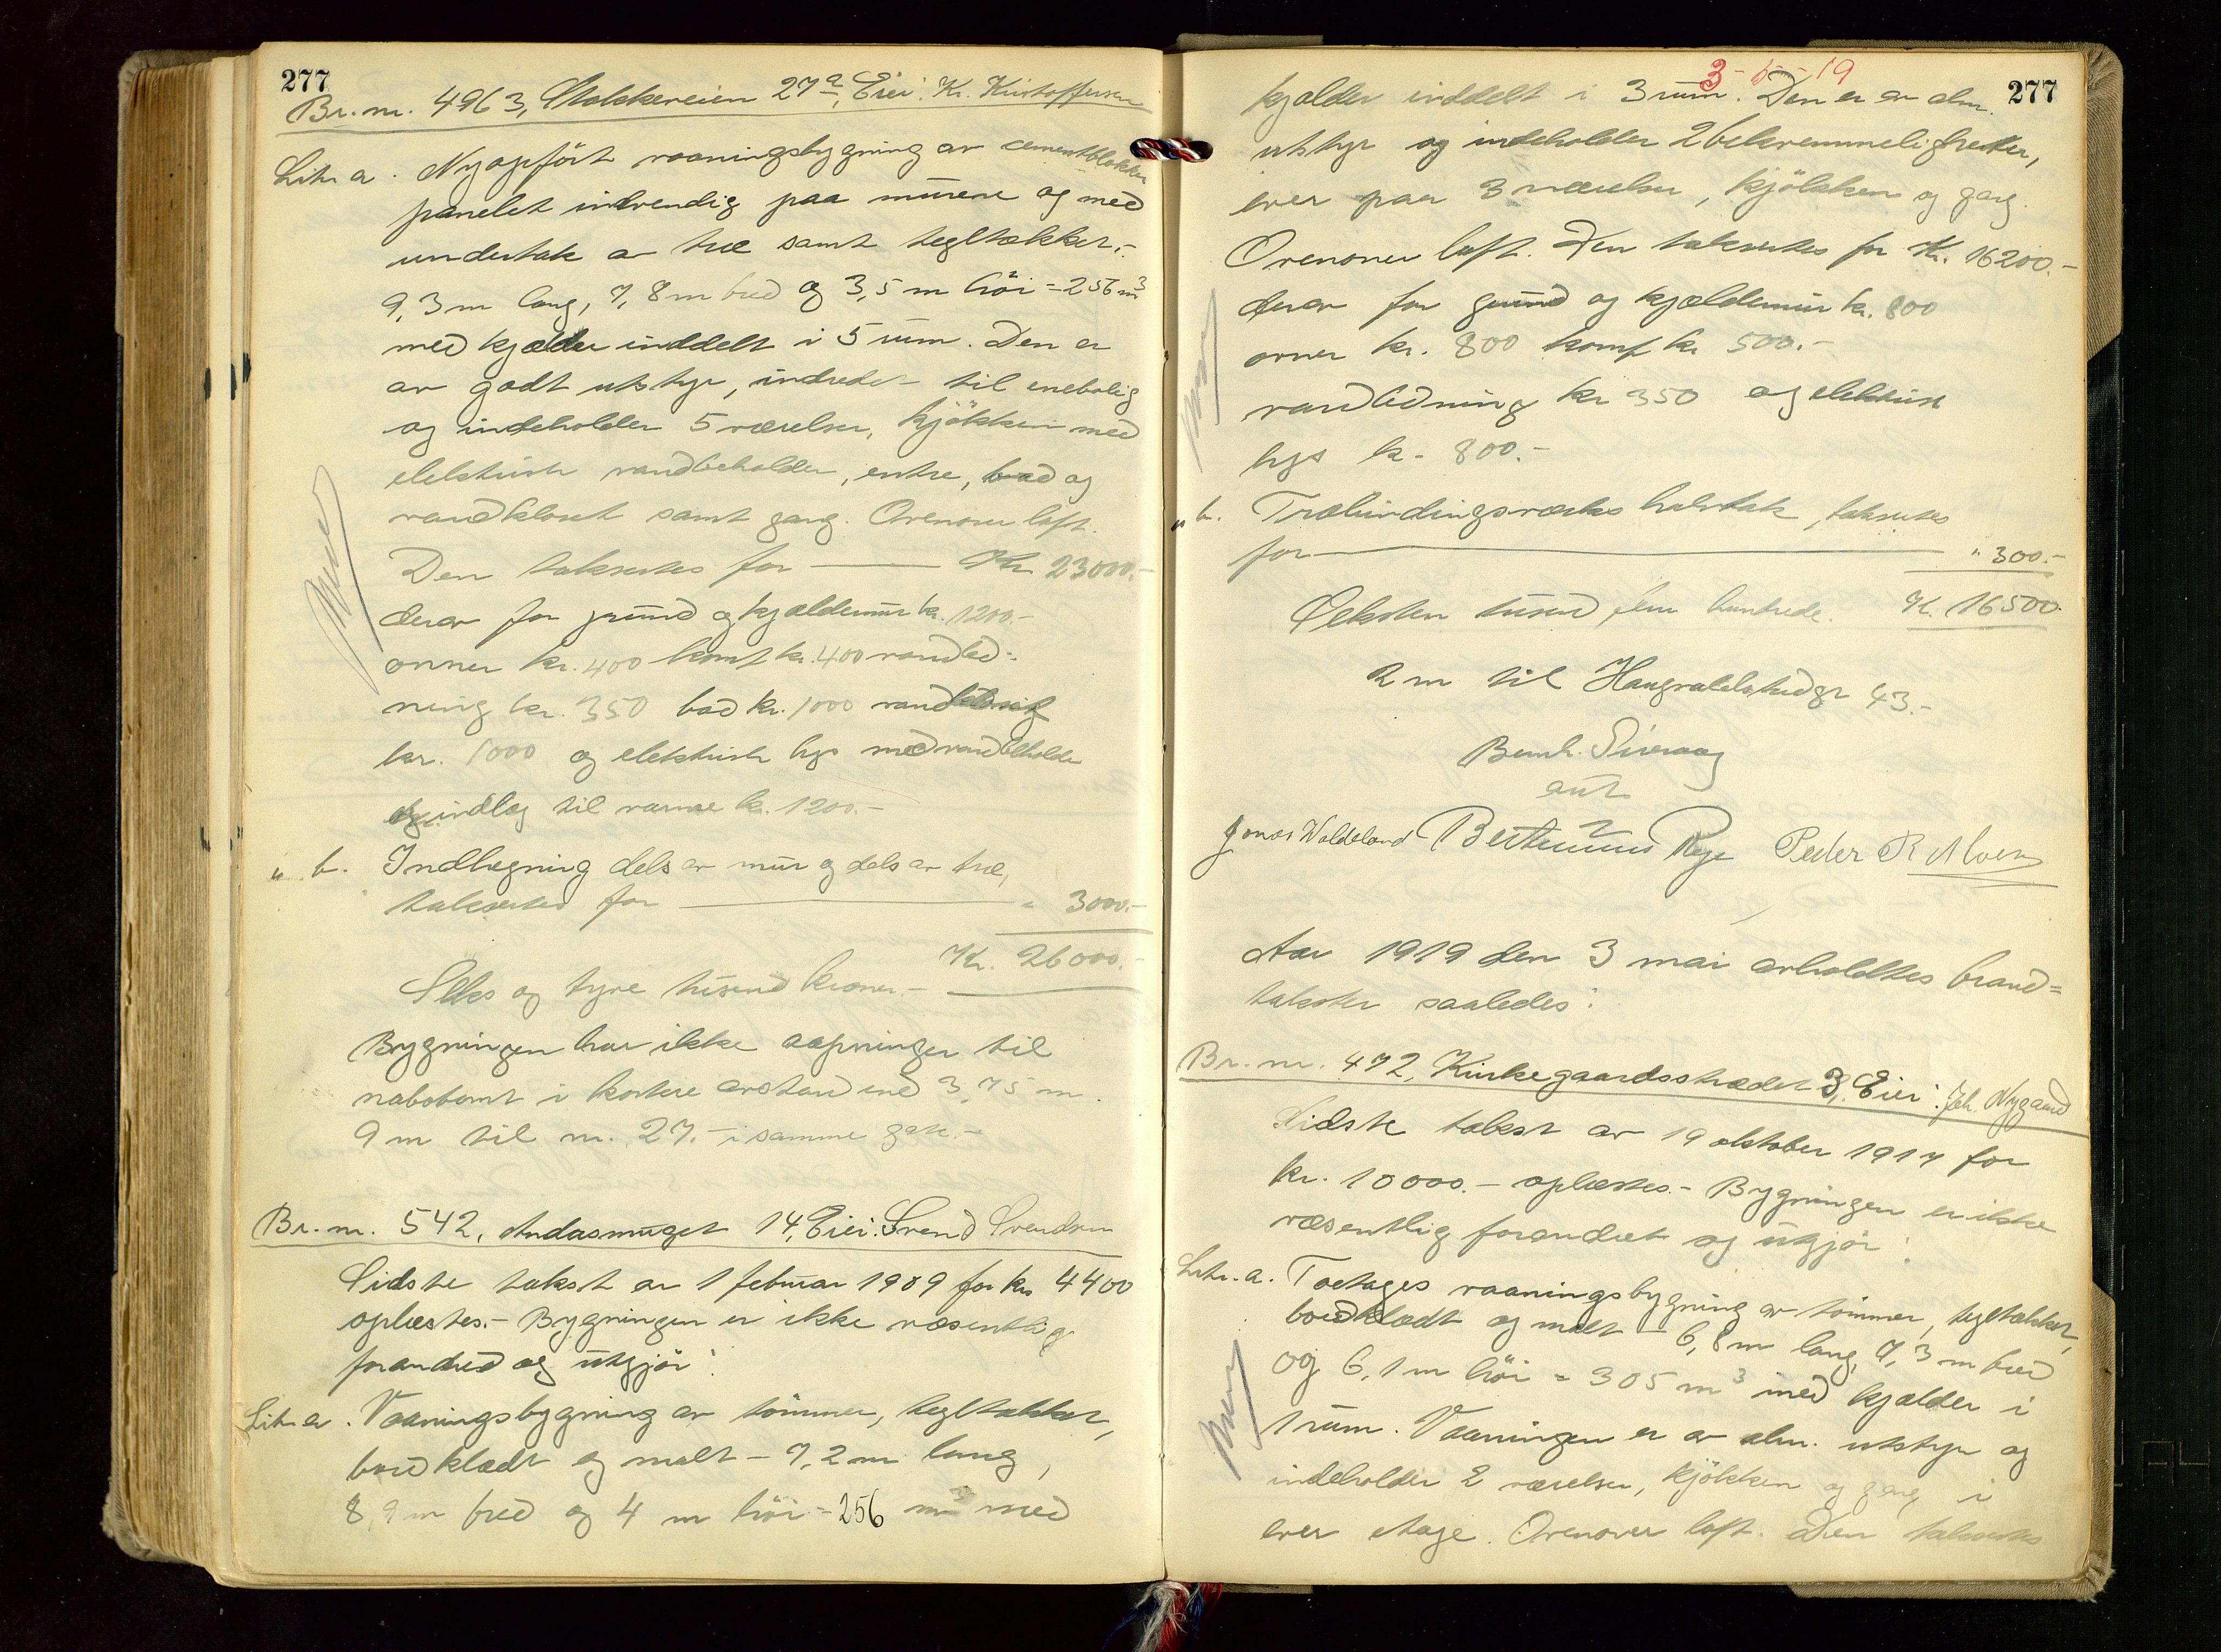 277
Br. nr. 4963, Stokkeveien 27a, Eier: Kr. Kristoffersen
Litr a. Nyopført vaaningsbygning av cementblokker
panelet indvendig paa murene og med
undertak av træ samt tegltækket.-
9,3 m lang, 7,8 m bred og 3,5 m höi = 256 m³
med kjælder inddelt i 5 rum. Den er
av godt utstyr, indredet til enebolig
og indeholder 5 værelser, kjøkken med
elektrisk vandbeholder, entre, bad og
vandkloset samt gang. Ovenover loft.
Den takseres for — Kr. 23000.-
derav for grund og kjældermur kr. 1200.-
ovner kr. 400 komf kr. 400 vandled-
ning kr. 350 bad kr. 1000 vandklosset
kr. 1000 og elektrisk lys med vandbeholder
og indlæg til varme kr. 1200.-
" b. Indhegning dels av mur og dels av træ,
takseres for — " 3000.-
Kr. 26000.-
Seks og tyve tusend kroner.-
Bygningen har ikke aapninger til
nabotomt i kortere avstand end 3,75 m.
9 m til nr. 27.- i samme gate.-
Br. nr. 542, Andasmuget 14, Eier: Svend Svendsen
Sidste takst av 1 februar 1909 for kr 4400
oplæstes.- Bygningen er ikke væsentlig
forandred og utgjör:
Litr a. Vaaningsbygning av tömmer, tegltækket,
bordklædt og malt - 7,2 m lang,
8,9 m bred og 4 m höi = 256 m³ med
3-5-19
277
kjælder inddelt i 3 rum. Den er av alm.
utstyr og indeholder 2 bekvemmeligheter,
hver paa 3 værelser, kjökken og gang.
Ovenover loft. Den takseres for Kr. 16200.-
derav for grund og kjældermur kr. 800
ovner kr. 800 komf kr 500.-
vandledning kr 350 og elektrisk
lys kr. 800.-
" b. Træbindingsværks halvtak, takseres
for — " 300.-
Seksten tusend fem hundrede. Kr. 16500.
2 m til Haugvaldstadgt 43.-
Bernh. Siveraag
aut
Jonas Waldeland Bertinius Rege Peder R Moen
Aar 1919 den 3 mai avholdtes brand=
takster saaledes:
Br. nr. 472, Kirkegaardsstrædet 3, Eier: Joh. Nygaard
Sidste takst av 19 oktober 1917 for
kr. 10000.- oplæstes.- Bygningen er ikke
væsentlig forandret og utgjör:
Litr. a. Toetages vaaningsbygning av tömmer, tegltækket,
bordklædt og malt - 6,8 m lang, 7,3 m bred
og 6,1 m höi = 305 m³ med kjælder i
1 rum. Vaaningen er av alm. utstyr og
indeholder 2 værelser, kjökken og gang i
hver etage. Ovenover loft. Den takseres